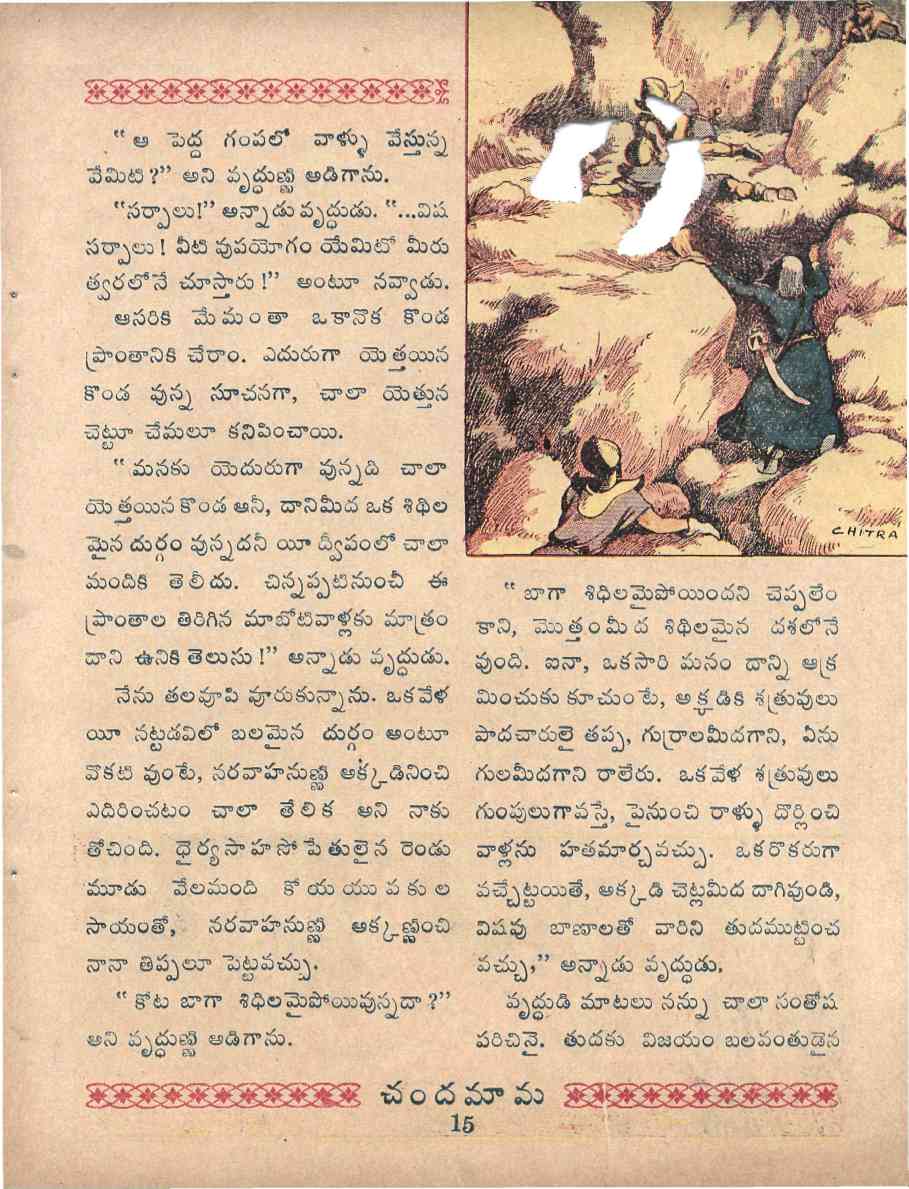 “ ఆ పెద్ద గంపలో వాళ్ళు వేస్తున్న
వేమిటి ?” అని వృద్ధుణ్ణి అడిగాను.
“సర్పాలు!” అన్నాడు వృద్ధుడు. “...విష
సర్పాలు ! వీటి వుపయోగం యేమిటో మీరు
త్వరలోనే చూస్తారు !” అంటూ నవ్వాడు.
ఆసరికి మేమంతా ఒకానొక కొండ
ప్రాంతానికి చేరాం. ఎదురుగా యెత్తయిన
కొండ వున్న సూచనగా, చాలా యెత్తున
చెట్టూ చేమలూ కనిపించాయి.
“ మనకు యెదురుగా వున్నది చాలా
యెత్తయిన కొండ అనీ, దానిమీద ఒక శిథిల
మైన దుర్గం వున్నదనీ యీ ద్వీపంలో చాలా
మందికి తెలీదు. చిన్నప్పటినుంచీ ఈ
ప్రాంతాల తిరిగిన మాబోటివాళ్లకు మాత్రం
దాని ఉనికి తెలుసు !” అన్నాడు వృద్ధుడు.
నేను తలవూపి వూరుకున్నాను. ఒకవేళ
యీ నట్టడవిలో బలమైన దుర్గం అంటూ
వొకటి వుంటే, నరవాహనుణ్ణి అక్కడినించి
ఎదిరించటం చాలా తేలిక అని నాకు
తోచింది. ధైర్యసాహసోపేతులైన రెండు
మూడు వేలమంది కోయయువకుల
సాయంతో, నరవాహనుణ్ణి అక్కణ్ణించి
నానా తిప్పలూ పెట్టవచ్చు.
“ కోట బాగా శిథిలమైపోయివున్నదా ?”
అని వృద్ధుణ్ణి అడిగాను.
CHITRA
“ బాగా శిథిలమైపోయిందని చెప్పలేం
కాని, మొత్తంమీద శిథిలమైన దశలోనే
వుంది. ఐనా, ఒకసారి మనం దాన్ని ఆక్ర
మించుకు కూచుంటే, అక్కడికి శత్రువులు
పాదచారులై తప్ప, గుర్రాలమీదగాని, ఏను
గులమీదగాని రాలేరు. ఒకవేళ శత్రువులు
గుంపులుగావస్తే, పైనుంచి రాళ్ళు దొర్లించి
వాళ్లను హతమార్చవచ్చు. ఒకరొకరుగా
వచ్చేట్టయితే, అక్కడి చెట్లమీద దాగివుండి,
విషపు బాణాలతో వారిని తుదముట్టించ
వచ్చు,” అన్నాడు వృద్ధుడు.
వృద్ధుడి మాటలు నన్ను చాలా సంతోష
పరిచినై. తుదకు విజయం బలవంతుడైన
చందమామ
15